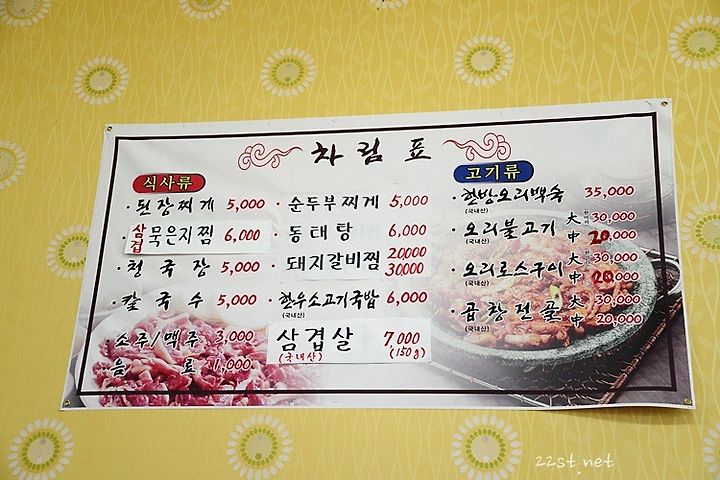 차림표
식사류
· 된장찌개 5,000
· 삼겹 묵은지찜 6,000
· 청국장 5,000
· 칼국수 5,000
· 소주/맥주 3,000
음료 1,000
· 순두부찌개 5,000
· 동태탕 6,000
· 돼지갈비찜 20,000
30,000
· 한우소고기국밥 6,000
(국내산)
삼겹살 7,000
(국내산) (150g)
고기류
· 한방오리백숙 35,000
(국내산)
· 오리불고기 大 30,000
(국내산) 中 20,000
· 오리로스구이 大 30,000
(국내산) 中 20,000
· 곱창전골 大 30,000
(국내산) 中 20,000
22st.net